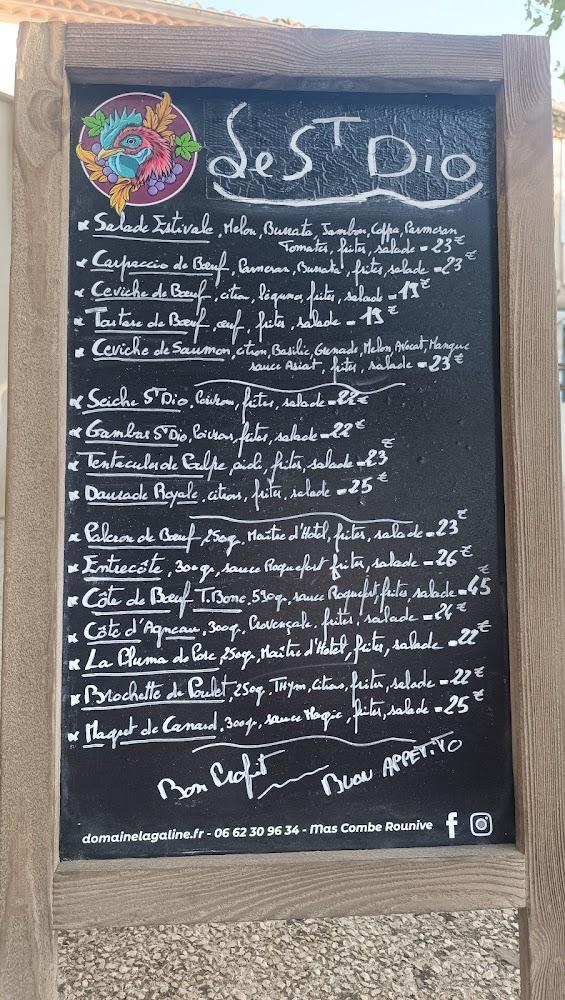 Le ST Dio
x Salade Estivale, Melon, Burrata, Jambon, Coppa, Parmesan
Tomates, frites, salade = 23€
x Carpaccio de Bœuf, Parmesan, Burrata, frites, salade = 23€
x Ceviche de Bœuf, citron, légumes, frites, salade = 19€
x Tartare de Bœuf, œuf, frites, salade = 19€
x Ceviche de Saumon, citron, Basilic, Grenade, Melon, Avocat, Mangue
sauce Asiat, frites, salade = 23€
x Seiche ST Dio, Poivrons, frites, salade = 22€
x Gambas ST Dio, Poivrons, frites, salade = 22€
x Tentacules de Poulpe, aïoli, frites, salade = 23€
x Daurade Royale, citrons, frites, salade = 25€
x Paleron de Bœuf, 250g, Maître d'Hotel, frites, salade = 23€
x Entrecôte, 300gr, sauce Roquefort frites, salade = 26€
x Côte de Bœuf T.Bone, 590gr, sauce Roquefort, frites, salade = 45€
x Côte d'Agneau, 300gr, Provençale, frites, salade = 24€
x La Pluma de Porc, 250gr, Maître d'Hotel, frites, salade = 22€
x Brochette de Poulet, 250g, THym, citron, frites, salade = 22€
x Magret de Canard, 300gr, sauce Magic, frites, salade = 25€
Bon Profit
BUON APPETITO
domainelagaline.fr - 06 62 30 96 34 - Mas Combe Rounive